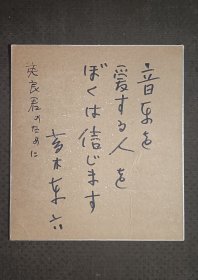 音楽を
愛する人を
ぼくは信じます
高木東六
英良君のために